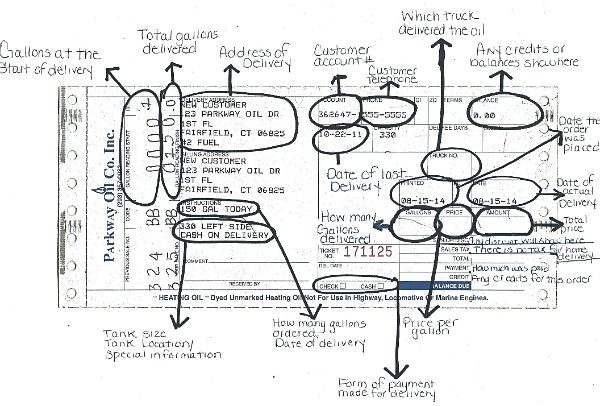 Which truck
delivered the oil
Total gallons
delivered
Gallons at the
Start of delivery
Address of
Delivery
Customer
account #
Customer
Telephone
Any credits or
balances show here
DELIVERY ADDRESS
NEW CUSTOMER
123 PARKWAY OIL DR
1ST FL
FAIRFIELD, CT 06825
#2 FUEL
BILLING ADDRESS
NEW CUSTOMER
123 PARKWAY OIL DR
1ST FL
FAIRFIELD, CT 06825
Parkway Oil Co. Inc.
GALLON READING START
GALLON READING FINISH
ACCOUNT
PHONE
TERMS
BALANCE
362647-1
555-5555
0.00
10-22-11
330
DEGREE DAYS
TRUCK NO.
Date the
order
was
placed
Date of last
Delivery
PRINTED
DATE
08-15-14
08-15-14
Date of
actual
Delivery
How many
Gallons
delivered
GALLONS
PRICE
AMOUNT
Total
price
INSTRUCTIONS
150 GAL TODAY
330 LEFT SIDE
CASH ON DELIVERY
CODE
BB
BB
324
315
COMMENT
RECEIVED BY
TICKET NO.
171125
DEL. DATE
CHECK
CASH
Any discount will show here
SALES TAX
There is no tax for home
delivery
TOTAL
PAYMENT
How much was paid
CREDIT
Any credits for this order
BALANCE DUE
HEATING OIL — Dyed Unmarked Heating Oil Not For Use In Highway, Locomotive Or Marine Engines.
Tank size
Tank Location/
Special information
How many gallons
ordered
Date of delivery
Price per
gallon
Form of payment
made for delivery